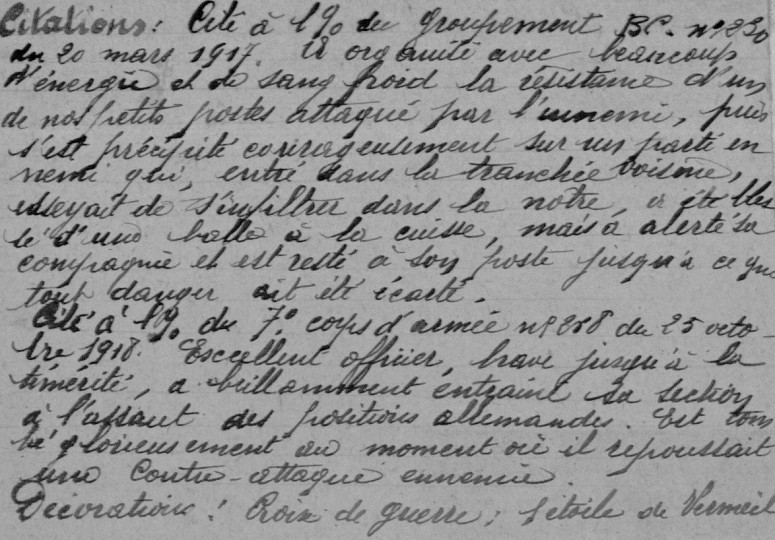 Citations: Cité à l'% du groupement B.C. nº 230
du 20 mars 1917. A organisé avec beaucoup
d'énergie et de sang froid la résistance d'un
de nos petits postes attaqué par l'ennemi, puis
s'est précipité courageusement sur un parti en
nemi qui, entré dans la tranchée voisine,
essayait de s'infiltrer dans la notre, a été bles
sé d'une balle à la cuisse, mais a alerté sa
compagnie et est resté à son poste jusqu'à ce que
tout danger ait été écarté.
Cité à l'% du 7º corps d'armée nº 258 du 25 octo-
bre 1918. Excellent officier, brave jusqu'à la
témérité, a brillamment entrainé sa section
à l'assaut des positions allemandes. Est tom
bé glorieusement au moment où il repoussait
une contre-attaque ennemie.
Décorations: Croix de guerre; 1 étoile de Vermeil